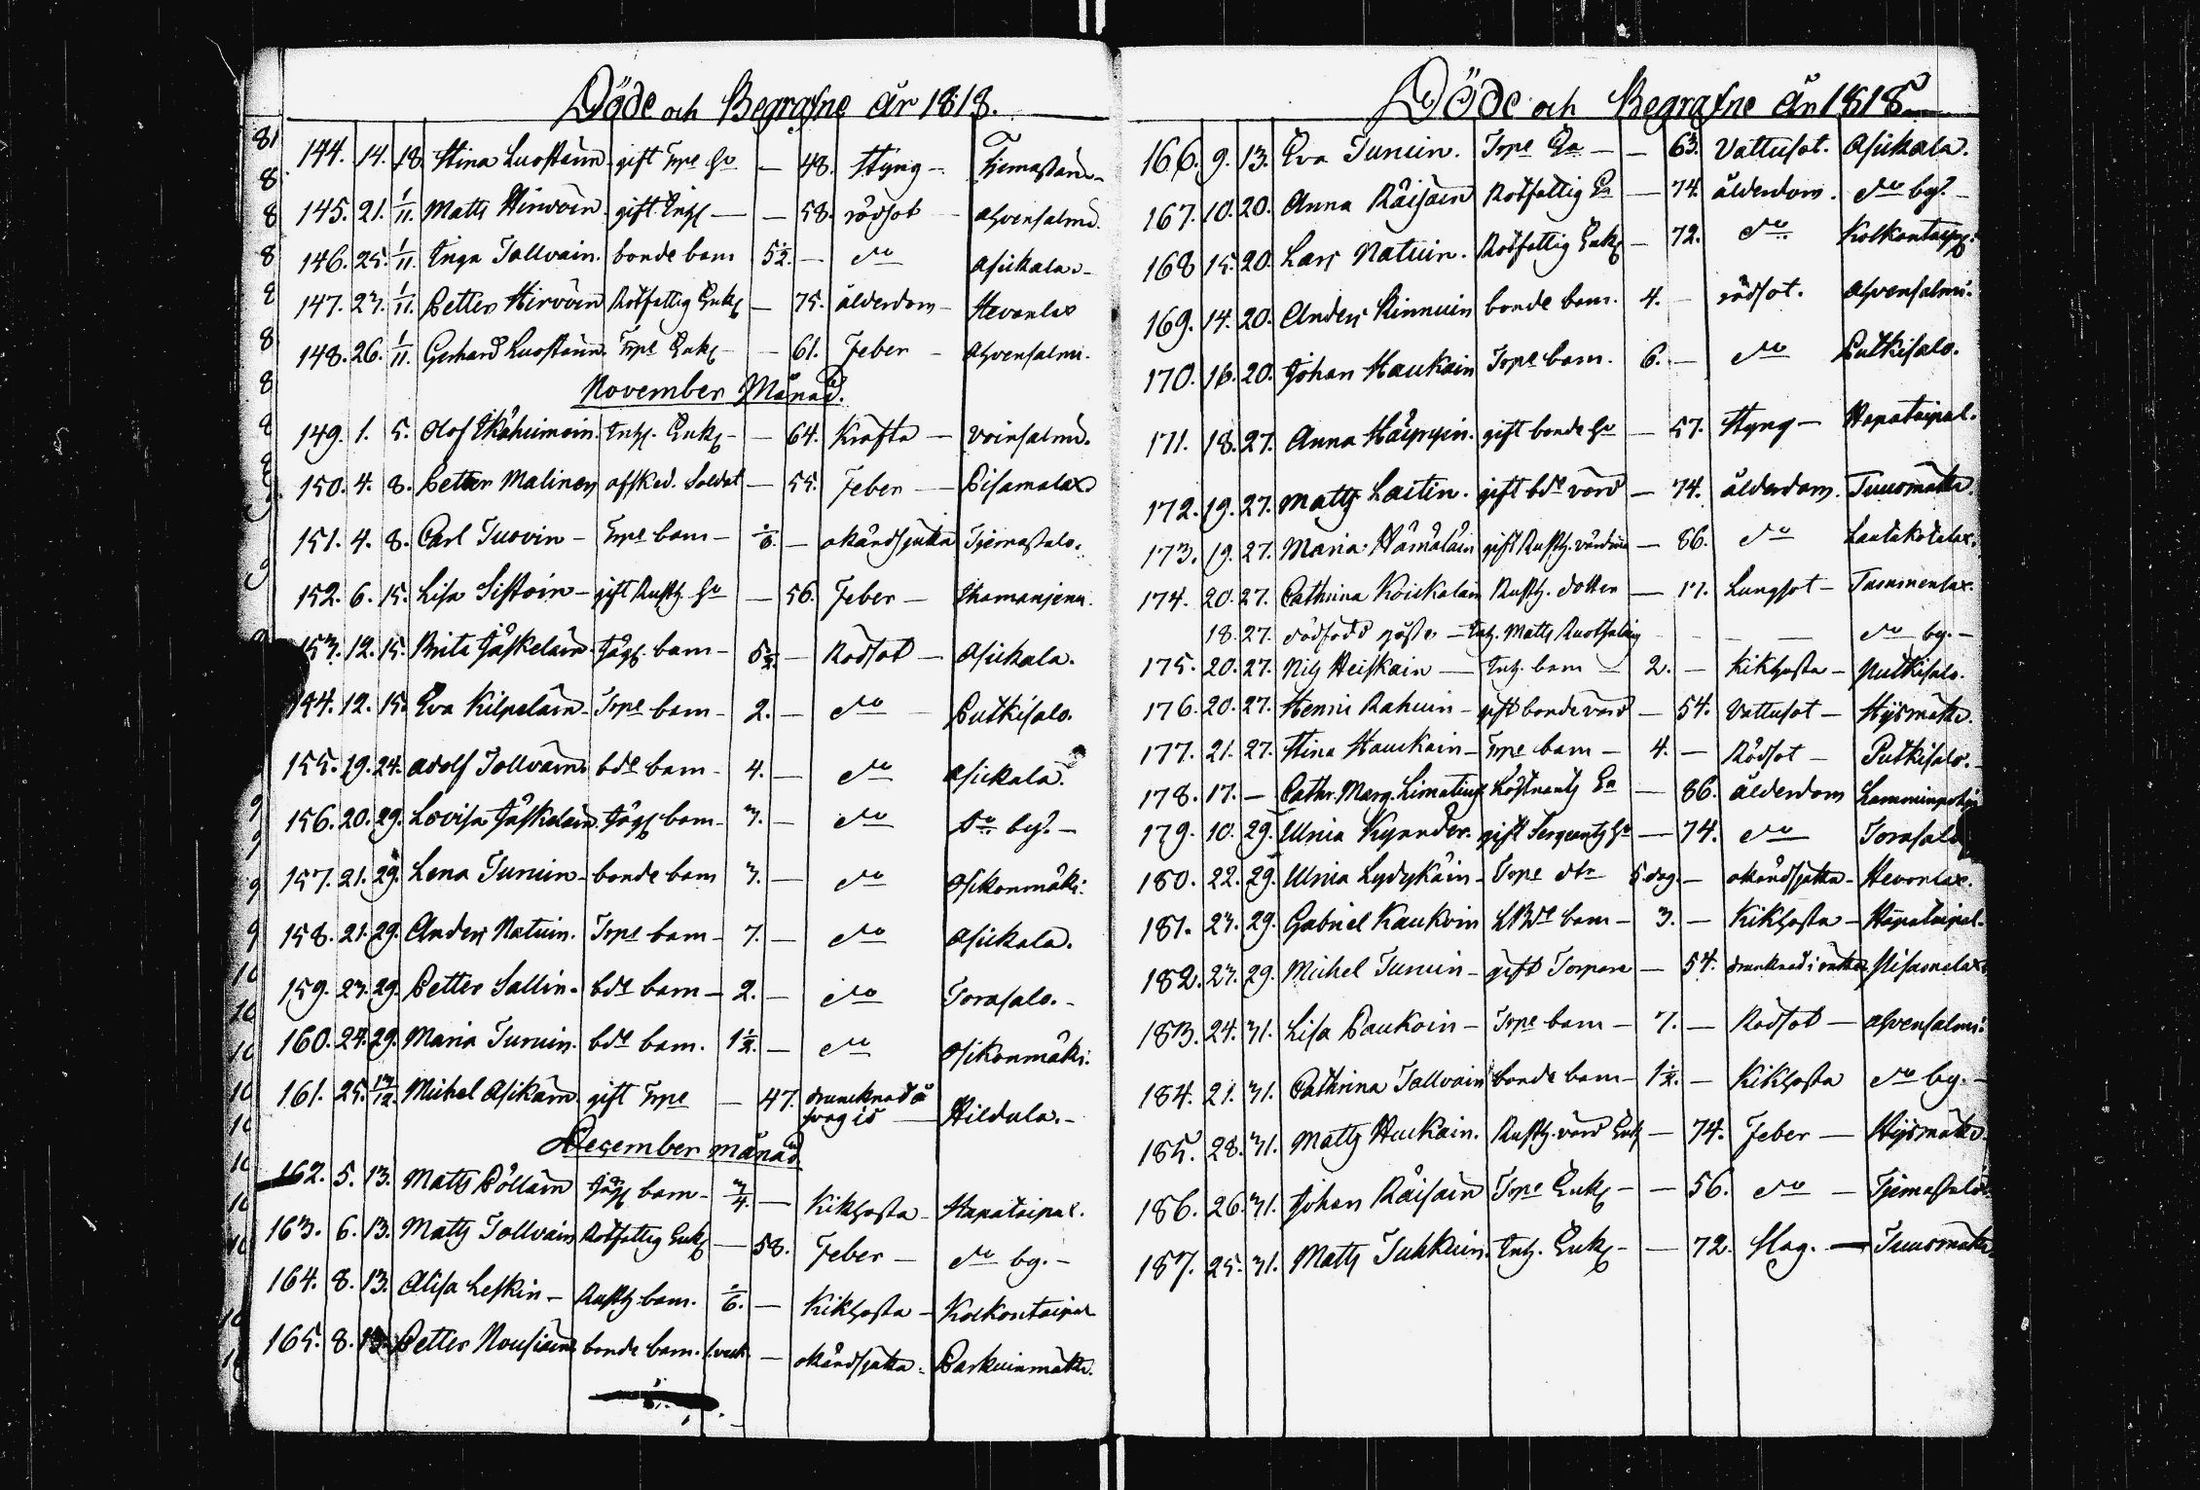 Döde och Begrafne år 1818.
144. 14. 18. Stina Luostain gift Trpe Hu — 48. Styng —
145. 21. 1/11. Matts Hirvoin gift Inh — — 58. rödsot — Ahvensalmi.
146. 25. 1/11. Inga Tallvain. bonde barn 5 1/2. — do Asickala. —
147. 27. 1/11. Petter Hirvoin Rotfattig Enkl — 75. ålderdom — Hevonlax
148. 26. 1/11. Gerhard Luostain. Trpe Enkl — — 61. Feber — Ahvensalmi.
November Månad.
149. 1. 5. Olof Inh. Enkl — — 64. Kräfta — Voinsalmi.
150. 4. 8. Petter Malinen afsked. Soldat — 55. Feber — Pisamalax
151. 4. 8. Carl Tuovin — Trpe barn — 1/6. — okändsjukd Tjemassalo.
152. 6. 15. Lisa Sistoin — gift Rusth. Hu — 56. Feber —
153. 12. 15. Brita Jäskeläin. barn — 5 1/2. — Rödsot — Asickala.
154. 12. 15. Eva Kilpeläin — Trpe barn — 2. — do Putkisalo.
155. 19. 24. Adolf Tollvain. bde barn — 4. — do Asickala.
156. 20. 29. Lovisa Jäskeläin. barn — 3. — do do by. —
157. 21. 29. Lena Turuin — bonde barn 3. — do Osikonmäki.
158. 21. 29. Anders Natuin. Trpe barn — 7. — do Asickala.
159. 23. 29. Petter Sallin. bde barn — 2. — do Sorasalo. —
160. 24. 29. Maria Turuin. bde barn. 1 1/2. — do Osikonmäki.
161. 25. 13/12. Michel Asikain gift Trpe — 47. drunknad å
svag is — Hildula. —
December månad
162. 5. 13. Matts Pöllain barn — 3/4. — Kikhosta — Hapataipal.
163. 6. 13. Matts Tollvain Rotfattig Enkl — 58. Feber — do by. —
164. 8. 13. Alisa Leskin — Rusth. barn. 1/6. — Kikhosta — Kolkontaipal
165. 8. 13. Petter Nousiain bonde barn. 1.veck. — okändsjukd. Parkuinmäki.
Döde och Begrafne År 1818
166. 9. 13. Eva Turuin. Trpe Ea — — 63. Vattusot. Asickala.
167. 10. 20. Anna Räisäin Rotfattig Ea — 74. ålderdom. do by. —
168 15. 20. Lars Natuin. Rotfattig Enkl — 72. do Kolkontaipal.
169. 14. 20. Anders Kinnuin bonde barn. 4. — rödsot. Ahvensalmi.
170. 16. 20. Johan Haukain Trpe barn. 6. — do Putkisalo.
171. 18. 27. Anna Häyrysin. gift bonde Hu — 57. Styng — Hapataipal.
172. 19. 27. Matts Laitin. gift bde värd — 74. ålderdom. Tuusmäki.
173. 19. 27. Maria Hämäläin gift Rusth. värdina — 86. do Lautakotalax.
174. 20. 27. Cathrina Koickalain Rusth. dotter — 17. Lungsot — Tammenlax.
18. 27. dödfödd — Inh. Matts — — do by. —
175. 20. 27. Nils Heiskain — Inh. barn — 2. — Kikhosta — Putkisalo.
176. 20. 27. Henric Rahuin — gift bonde värd — 54. Vattusot — Hijsmäki.
177. 21. 27. Stina Haukain — Trpe barn — 4. — Rödsot — Putkisalo. —
178. 17. — Cathr. Marg. Limatius Ea — 86. ålderdom
179. 10. 29. Ulrica Kynnder. gift Sergeants Hu — 74. do Sorasalo
180. 22. 29. Ulrica Lydykäin — Trpe dtr 5 dag. — okändsjukd — Hevonlax.
181. 23. 29. Gabriel Kaukoin barn — 3. — Kikhosta — Hapataipal.
182. 23. 29. Michel Turuin — gift Torpare — 54. drunknad i Pisamalax
183. 24. 31. Lisa Paukoin — Trpe barn — 7. — Rödsot — Ahvensalmi.
184. 21. 31. Cathrina Tallvain bonde barn — 1 1/2. — Kikhosta do by. —
185. 28. 31. Matts Huckain. Rusth. värd Enkl — 74. Feber — Hijsmäki.
186. 26. 31. Johan Räisäin Trpe Enkl — — 56. do — Tjemassalo.
187. 25. 31. Matts Tukkuin. Inh. Enkl — — 72. Slag. — Tuusmäki.